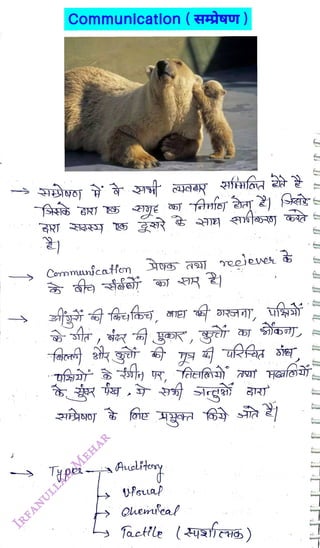 Communication ( सम्प्रेषण )
→ सम्प्रेषण में वे सभी व्यवहार सम्मिलित होते है
जिसके द्वारा एक समूह का निर्माण होता है। जिसके
द्वारा सदस्य एक दूसरे के साथ साझीकरण करते
है।
→ Communication प्रेषक तथा reciever के
के बीच संबंधों का सार है।
→ झींगुरों की किचकिच, बाघ की गरजना, पक्षियों
के गीत, बंदर की पुकार, कुत्तों का भौंकना,
बिल्ली और कुत्तों की मूत्र की परिचित गंध,
पक्षियों के रंगीन पर, तितलियों तथा मछलियों
के सुंदर पंख, ये सभी जन्तुओं द्वारा
सम्प्रेषण के लिए प्रयुक्त किये जाते है।
→ Types → Auditory
→ Visual
→ Chemical
→ Tactile (स्पर्शात्मक)
IRFANULLAH MEHAR